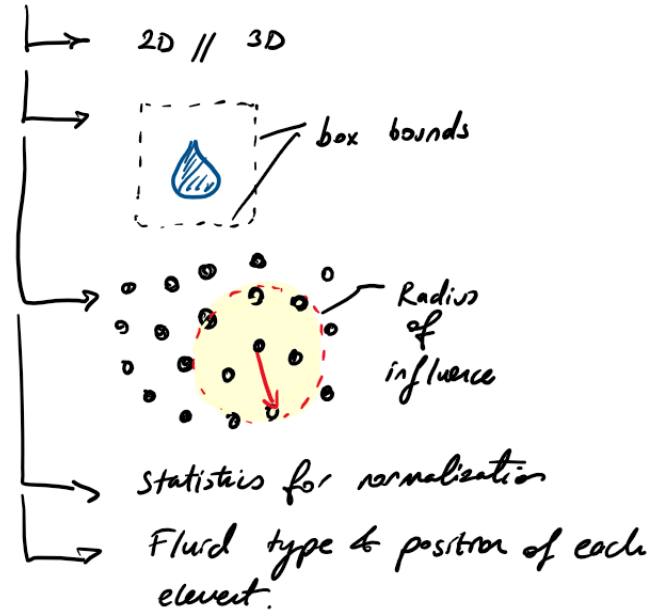 2D // 3D
box bounds
Radius
of
influence
Statistics for normalization
Fluid type & position of each
element.